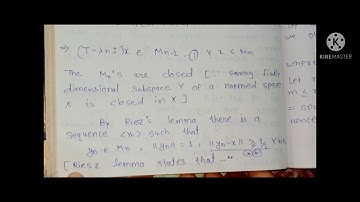 ⇒ (T-λnI)x ∈ Mn-1 - ① ∀ x ∈ Mn
The Mn's are closed [∵ every finite
dimensional subspace Y of a normed space
X is closed in X.]
By Riesz's lemma there is a
sequence <yn> such that
yn ∈ Mn, ||yn||=1, ||yn-x|| ≥ 1/2 ∀ x
[Riesz lemma states that -"
by
we o
where
Let
m ≤
= sp
Hence
KINEMASTER